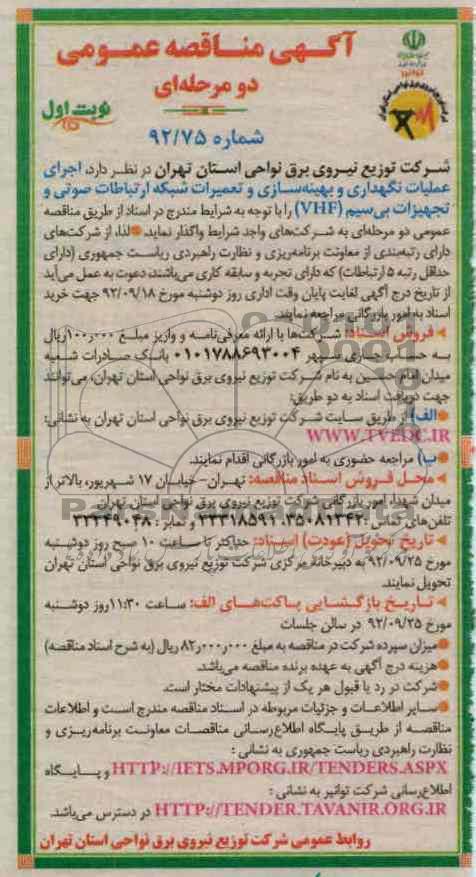 آگهی مناقصه عمومی
دو مرحله‌ای
نوبت اول
شماره ۹۲/۷۵
شرکت توزیع نیروی برق نواحی استان تهران در نظر دارد، اجرای
عملیات نگهداری و بهینه‌سازی و تعمیرات شبکه ارتباطات صوتی و
تجهیزات بی‌سیم (VHF) را با توجه به شرایط مندرج در اسناد از طریق مناقصه
عمومی دو مرحله‌ای به شرکت‌های واجد شرایط واگذار نماید. لذا، از شرکت‌های
دارای رتبه‌بندی از معاونت برنامه‌ریزی و نظارت راهبردی ریاست جمهوری (دارای
حداقل رتبه ۵ ارتباطات) که دارای تجربه و سابقه کاری می‌باشند، دعوت به عمل می‌آید
از تاریخ درج آگهی لغایت پایان وقت اداری روز دوشنبه مورخ ۹۲/۰۹/۱۸ جهت خرید
اسناد به امور بازرگانی مراجعه نمایند.
فروش اسناد: شرکت‌ها با ارائه معرفی‌نامه و واریز مبلغ ۱۰۰٫۰۰۰ریال
به حساب جاری سپهر ۰۱۰۱۷۸۸۶۹۳۰۰۴ بانک صادرات شعبه
میدان امام حسین به نام شرکت توزیع نیروی برق نواحی استان تهران، می‌توانند
جهت دریافت اسناد به دو طریق:
الف) از طریق سایت شرکت توزیع نیروی برق نواحی استان تهران به نشانی:
WWW.TVEDC.IR
ب) مراجعه حضوری به امور بازرگانی اقدام نمایند.
محل فروش اسناد مناقصه: تهران- خیابان ۱۷ شهریور، بالاتر از
میدان شهدا، امور بازرگانی شرکت توزیع نیروی برق نواحی استان تهران
تلفن‌های تماس: ۳۵۰۸۱۳۴۲، ۳۳۳۱۸۵۹۱ و نمابر: ۳۳۳۴۹۰۴۸
تاریخ تحویل (عودت) اسناد: حداکثر تا ساعت ۱۰ صبح روز دوشنبه
مورخ ۹۲/۰۹/۲۵ به دبیرخانه مرکزی شرکت توزیع نیروی برق نواحی استان تهران
تحویل نمایند.
تاریخ بازگشایی پاکت‌های الف: ساعت ۱۱:۳۰روز دوشنبه
مورخ ۹۲/۰۹/۲۵ در سالن جلسات
میزان سپرده شرکت در مناقصه به مبلغ ۸۲٫۰۰۰٫۰۰۰ ریال (به شرح اسناد مناقصه)
هزینه درج آگهی به عهده برنده مناقصه می‌باشد.
شرکت در رد یا قبول هر یک از پیشنهادات مختار است.
سایر اطلاعات و جزئیات مربوطه در اسناد مناقصه مندرج است و اطلاعات
مناقصه از طریق پایگاه اطلاع‌رسانی مناقصات معاونت برنامه‌ریزی و
نظارت راهبردی ریاست جمهوری به نشانی:
HTTP://IETS.MPORG.IR/TENDERS.ASPX و پایگاه
اطلاع‌رسانی شرکت توانیر به نشانی:
HTTP://TENDER.TAVANIR.ORG.IR در دسترس می‌باشد.
روابط عمومی شرکت توزیع نیروی برق نواحی استان تهران